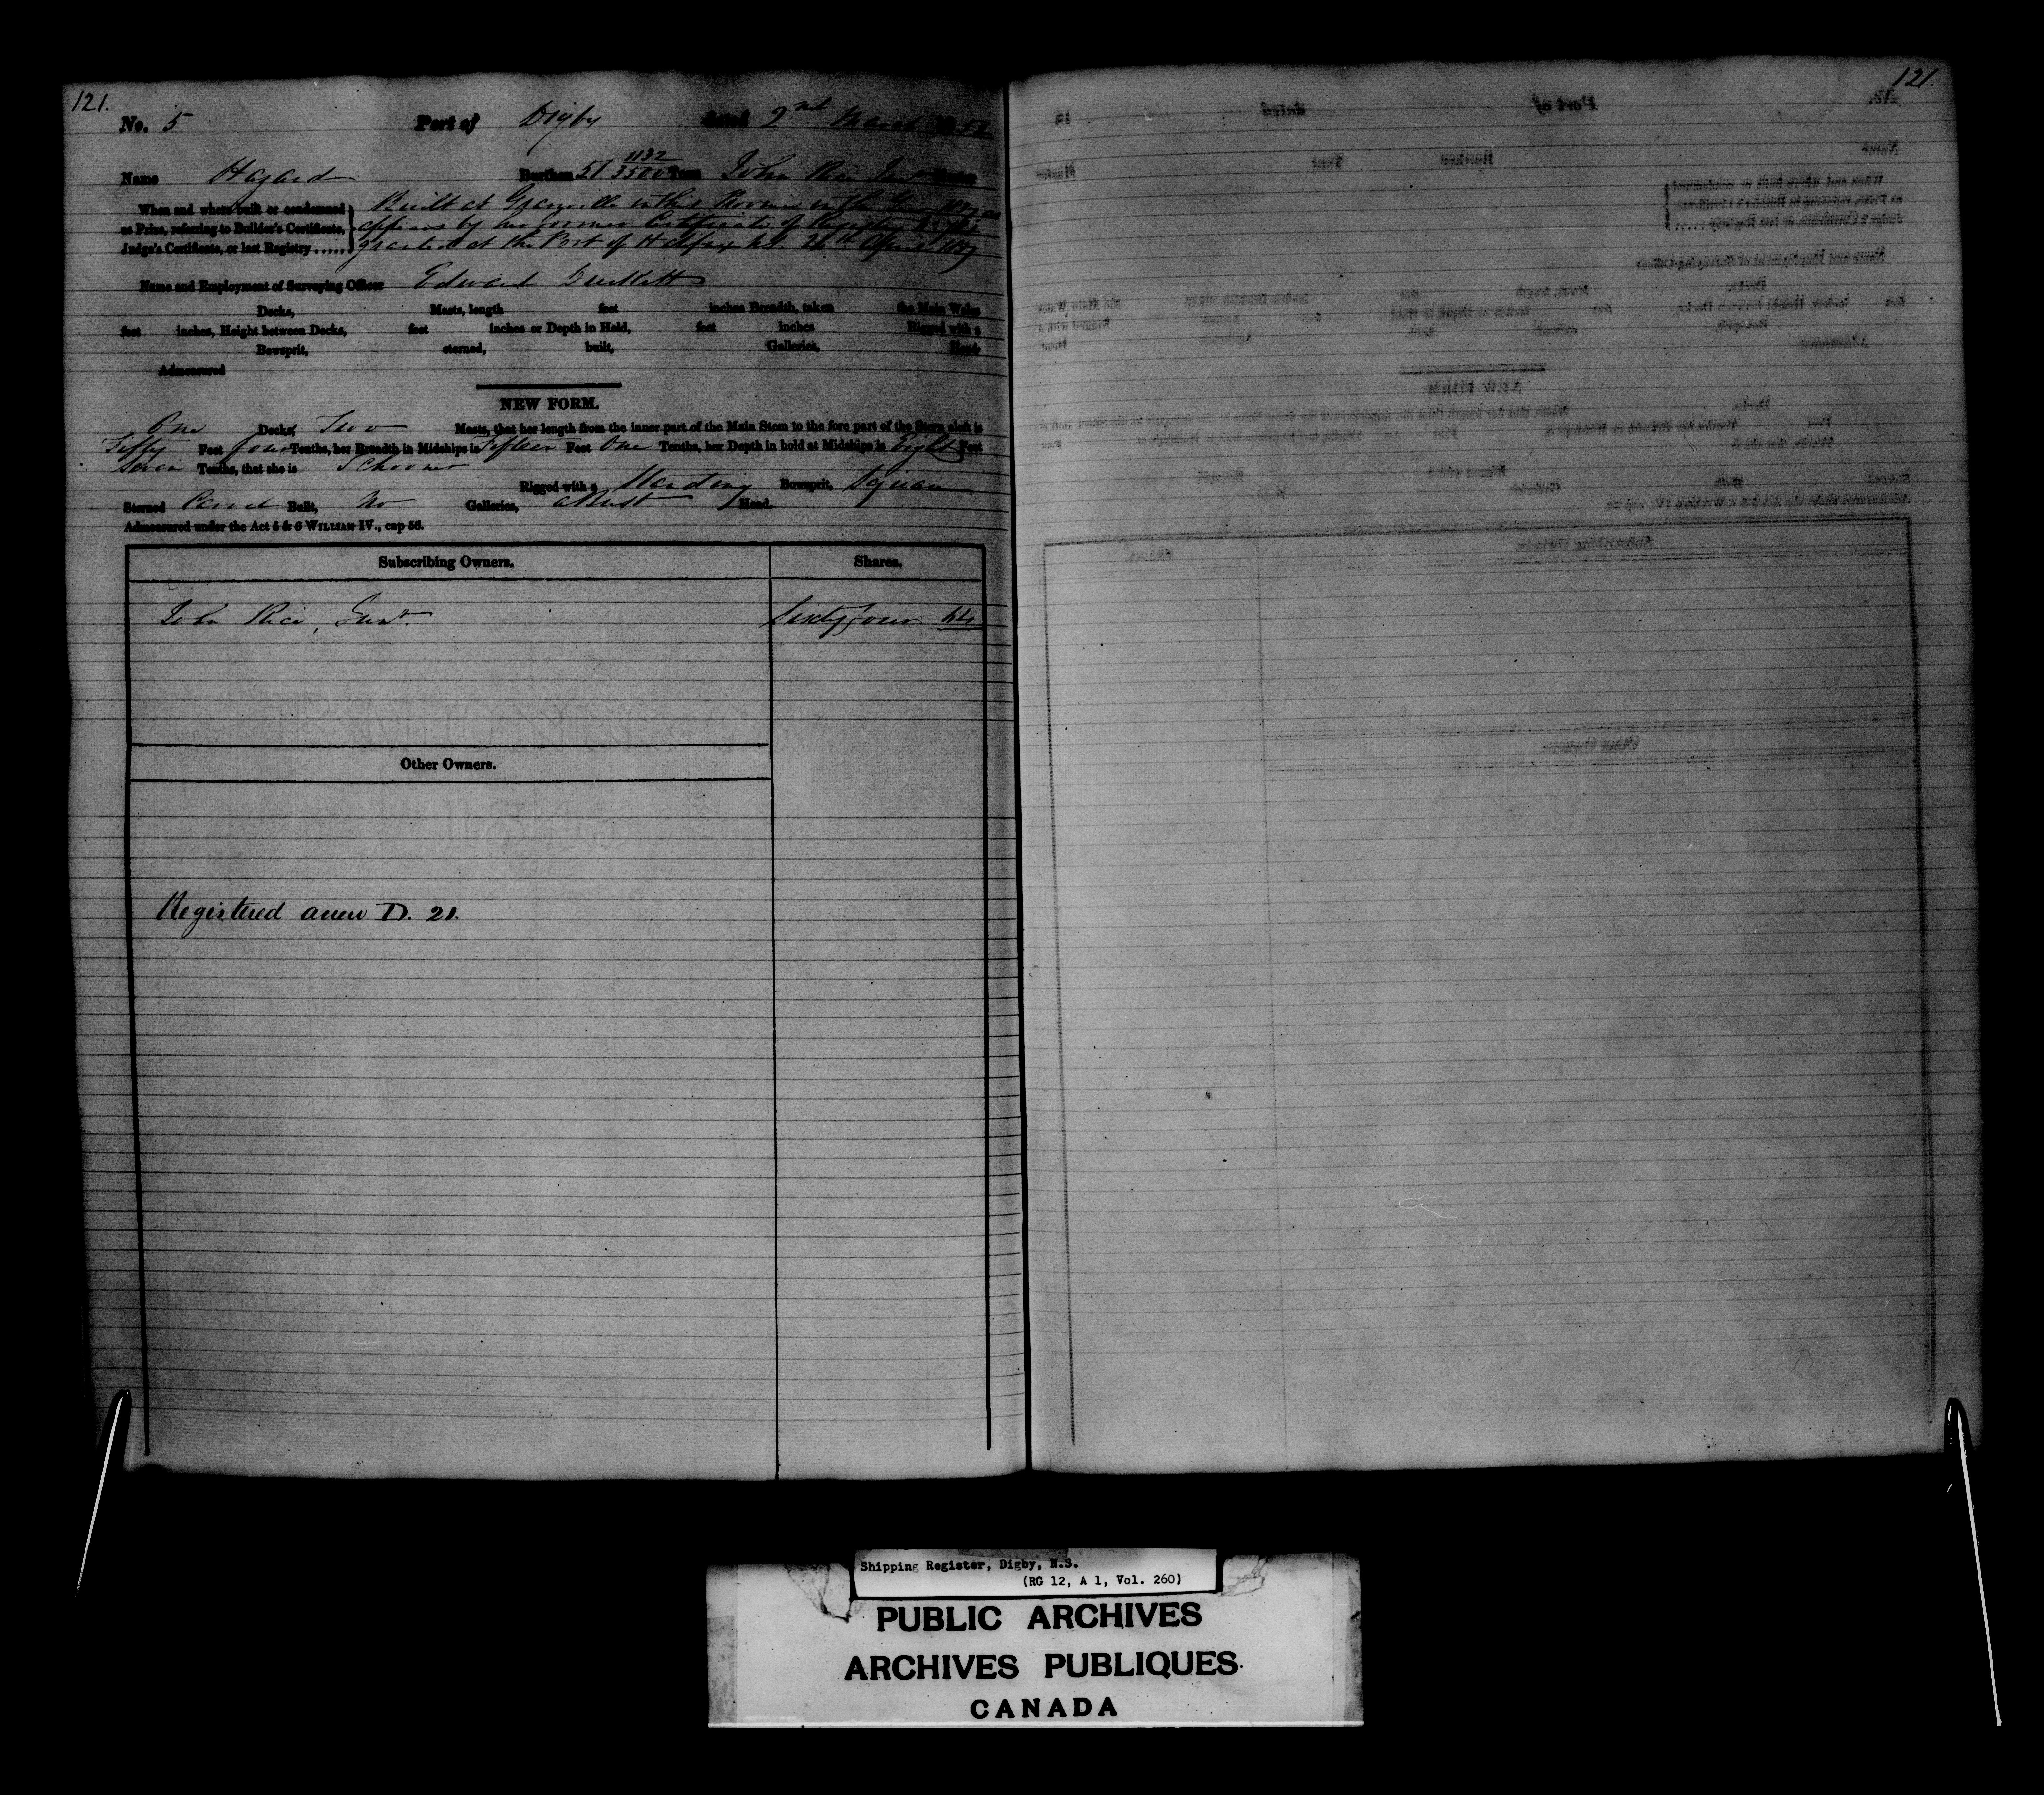 121.
No. 5 Port of Digby dated 2nd March
Name Hazard Burthen 57 1132/3500 Tons John Rice Junr Master
When and where built or condemned as Prize, referring to Builder's Certificate, Judge's Certificate, or last Registry......
Built at Granville in this Province in the Year
appears by her former Certificate of Registry
granted at the Port of Halifax April
Name and Employment of Surveying Officer Edward
Decks, Masts, length feet inches Breadth, taken the Main Wales
feet inches, Height between Decks, feet inches or Depth in Hold, feet inches Rigged with a
Bowsprit, sterned, built, Galleries, Head
Admeasured
NEW FORM.
One Decks, Two Masts, that her length from the inner part of the Main Stem to the fore part of the Stern aloft is
Fifty Feet four Tenths, her Breadth in Midships is Fifteen Feet One Tenths, her Depth in hold at Midships is Eight Feet
Seven Tenths, that she is Schooner
Rigged with a Standing Bowsprit, Square
Sterned Carvel Built, No Galleries, a Bust Head.
Admeasured under the Act 5 & 6 WILLIAM IV., cap 56.
Subscribing Owners. Shares.
John Rice, Junr. Sixty four 64
Other Owners.
Registered anew D. 21.
121.
Shipping Register, Digby, N.S.
(RG 12, A 1, Vol. 260)
PUBLIC ARCHIVES
ARCHIVES PUBLIQUES
CANADA